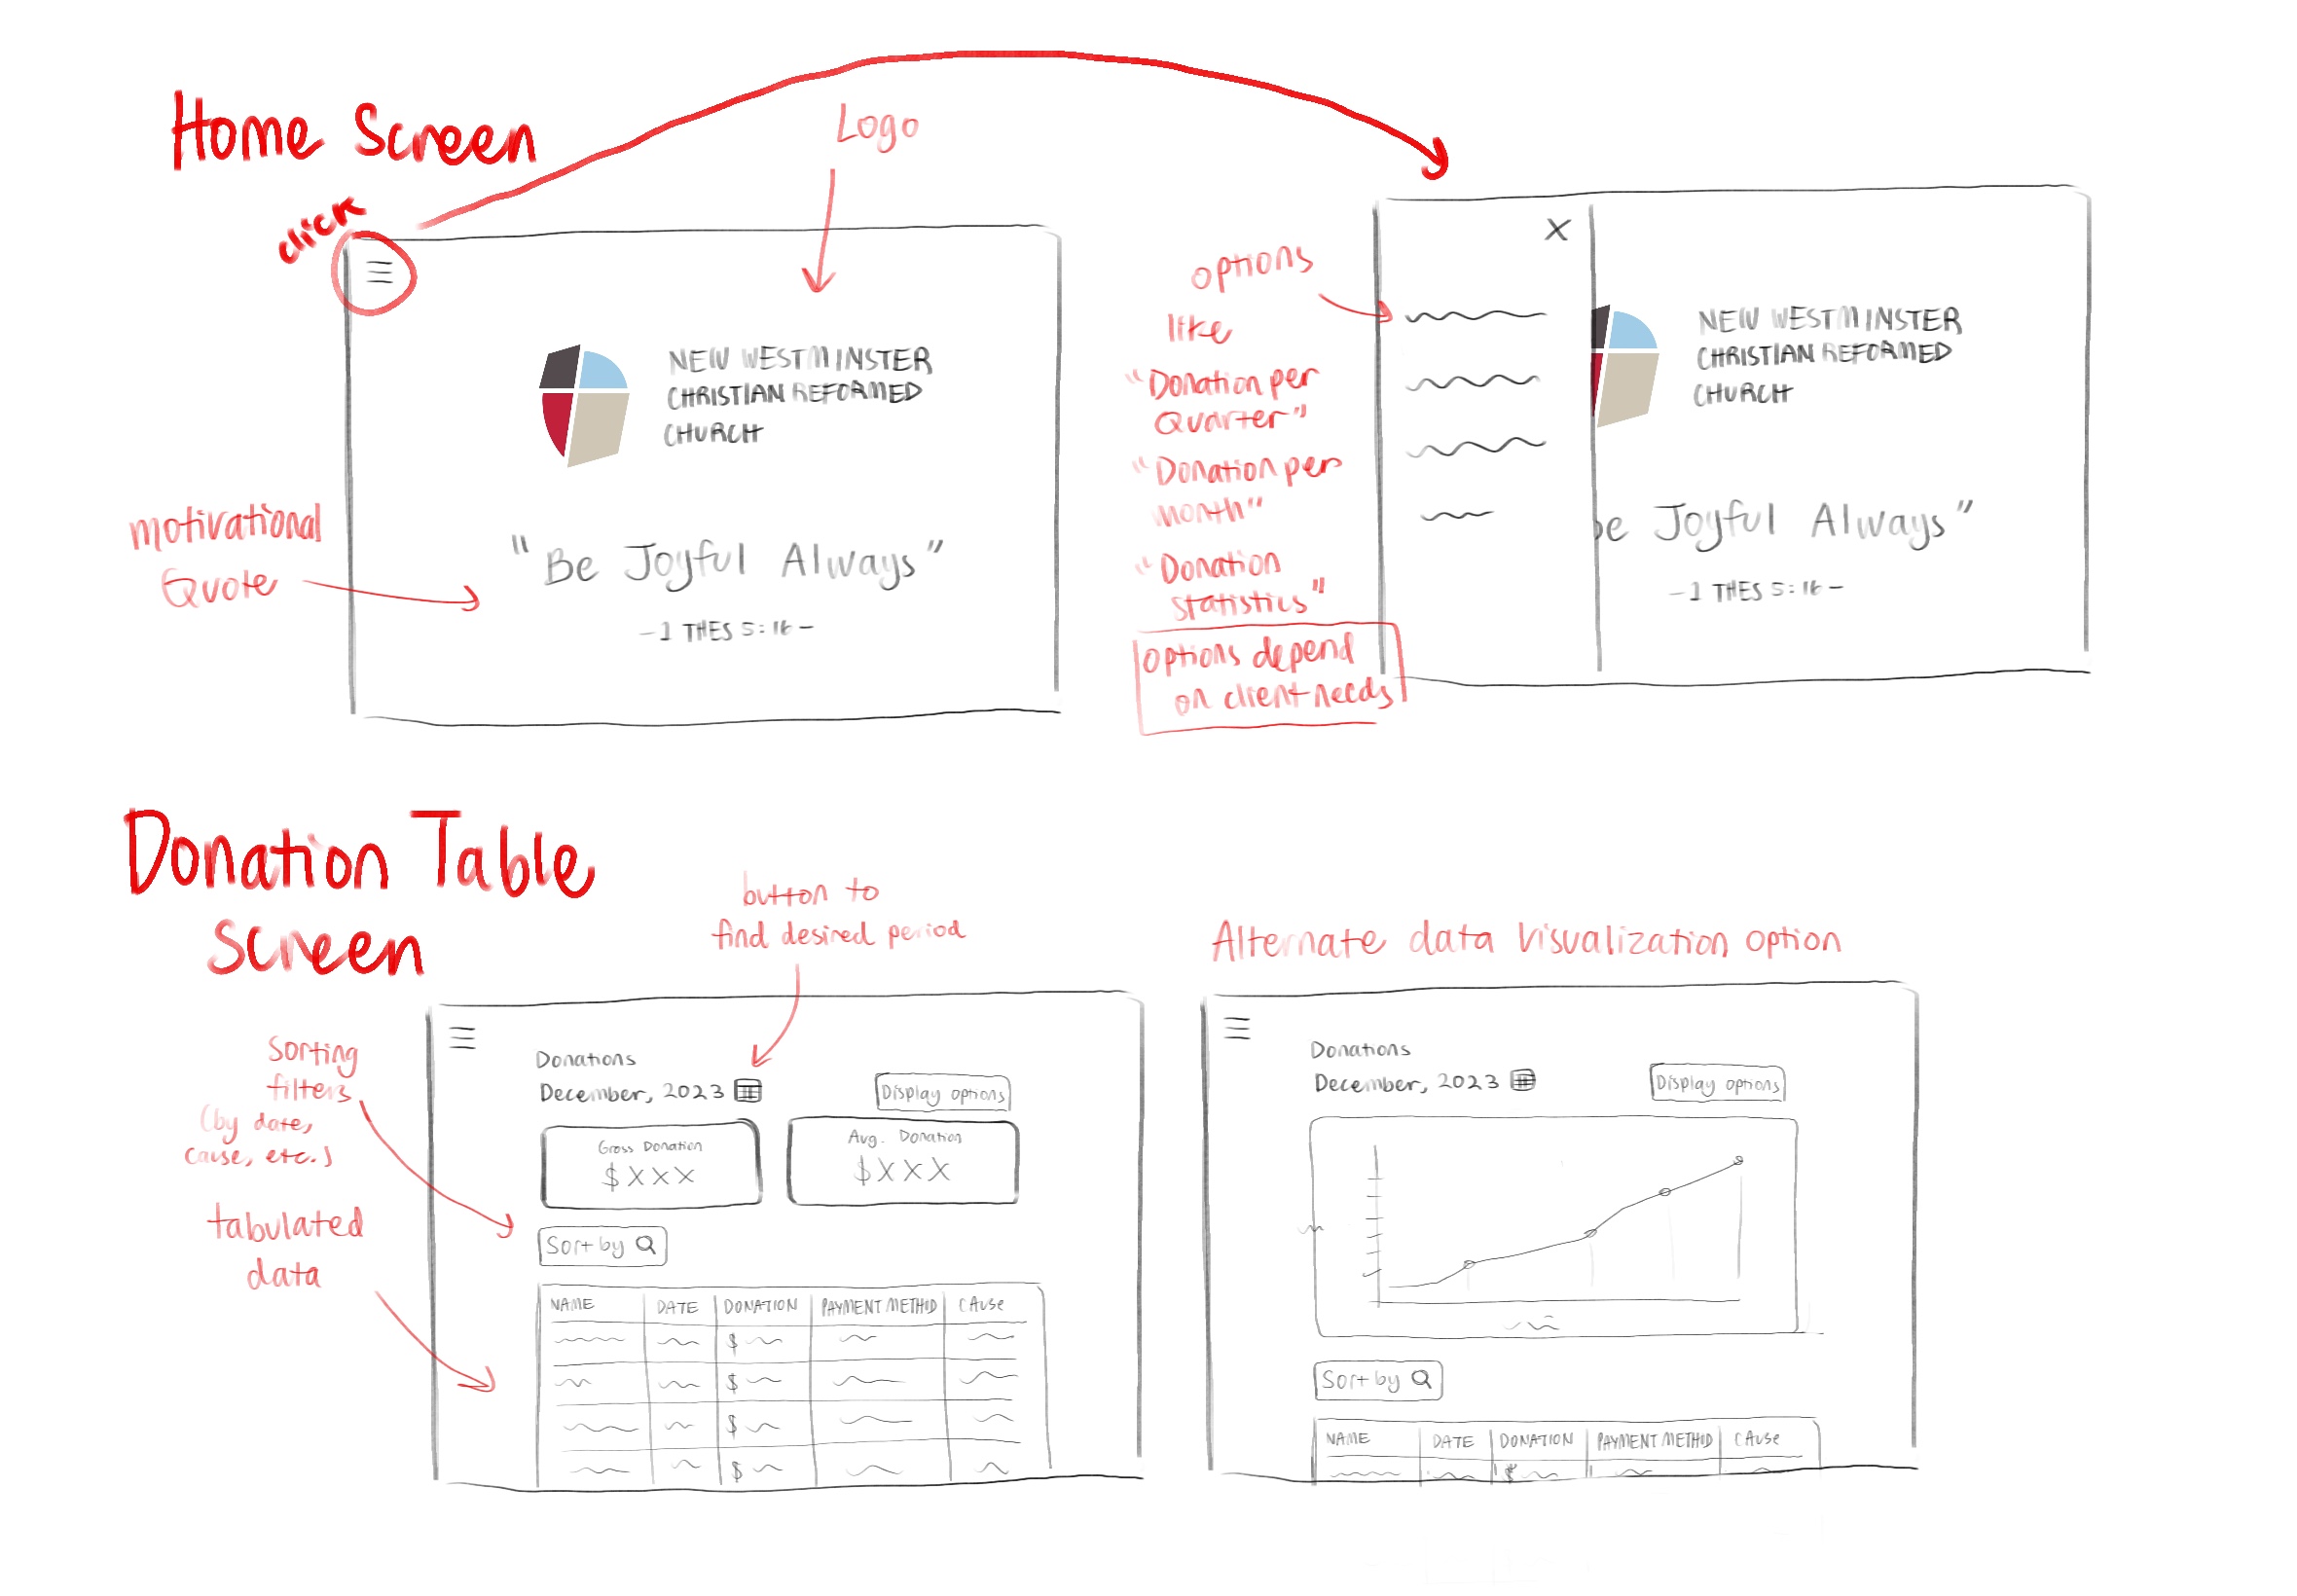 Home Screen
Logo
click
NEW WESTMINSTER
CHRISTIAN REFORMED
CHURCH
motivational
Quote
"Be Joyful Always"
-1 THES 5:16-
options
like
"Donation per
Quarter"
"Donation per
month"
"Donation
statistics"
options depend
on client needs
X
NEW WESTMINSTER
CHRISTIAN REFORMED
CHURCH
be Joyful Always"
-1 THES 5:16-
Donation Table
Screen
button to
find desired period
Sorting
filters
(by date,
cause, etc.)
tabulated
data
Donations
December, 2023
Display options
Gross Donation
$XXX
Avg. Donation
$XXX
Sort by
NAME DATE DONATION PAYMENT METHOD CAUSE
$
$
$
$
Alternate data visualization option
Donations
December, 2023
Display options
Sort by
NAME DATE DONATION PAYMENT METHOD CAUSE
$